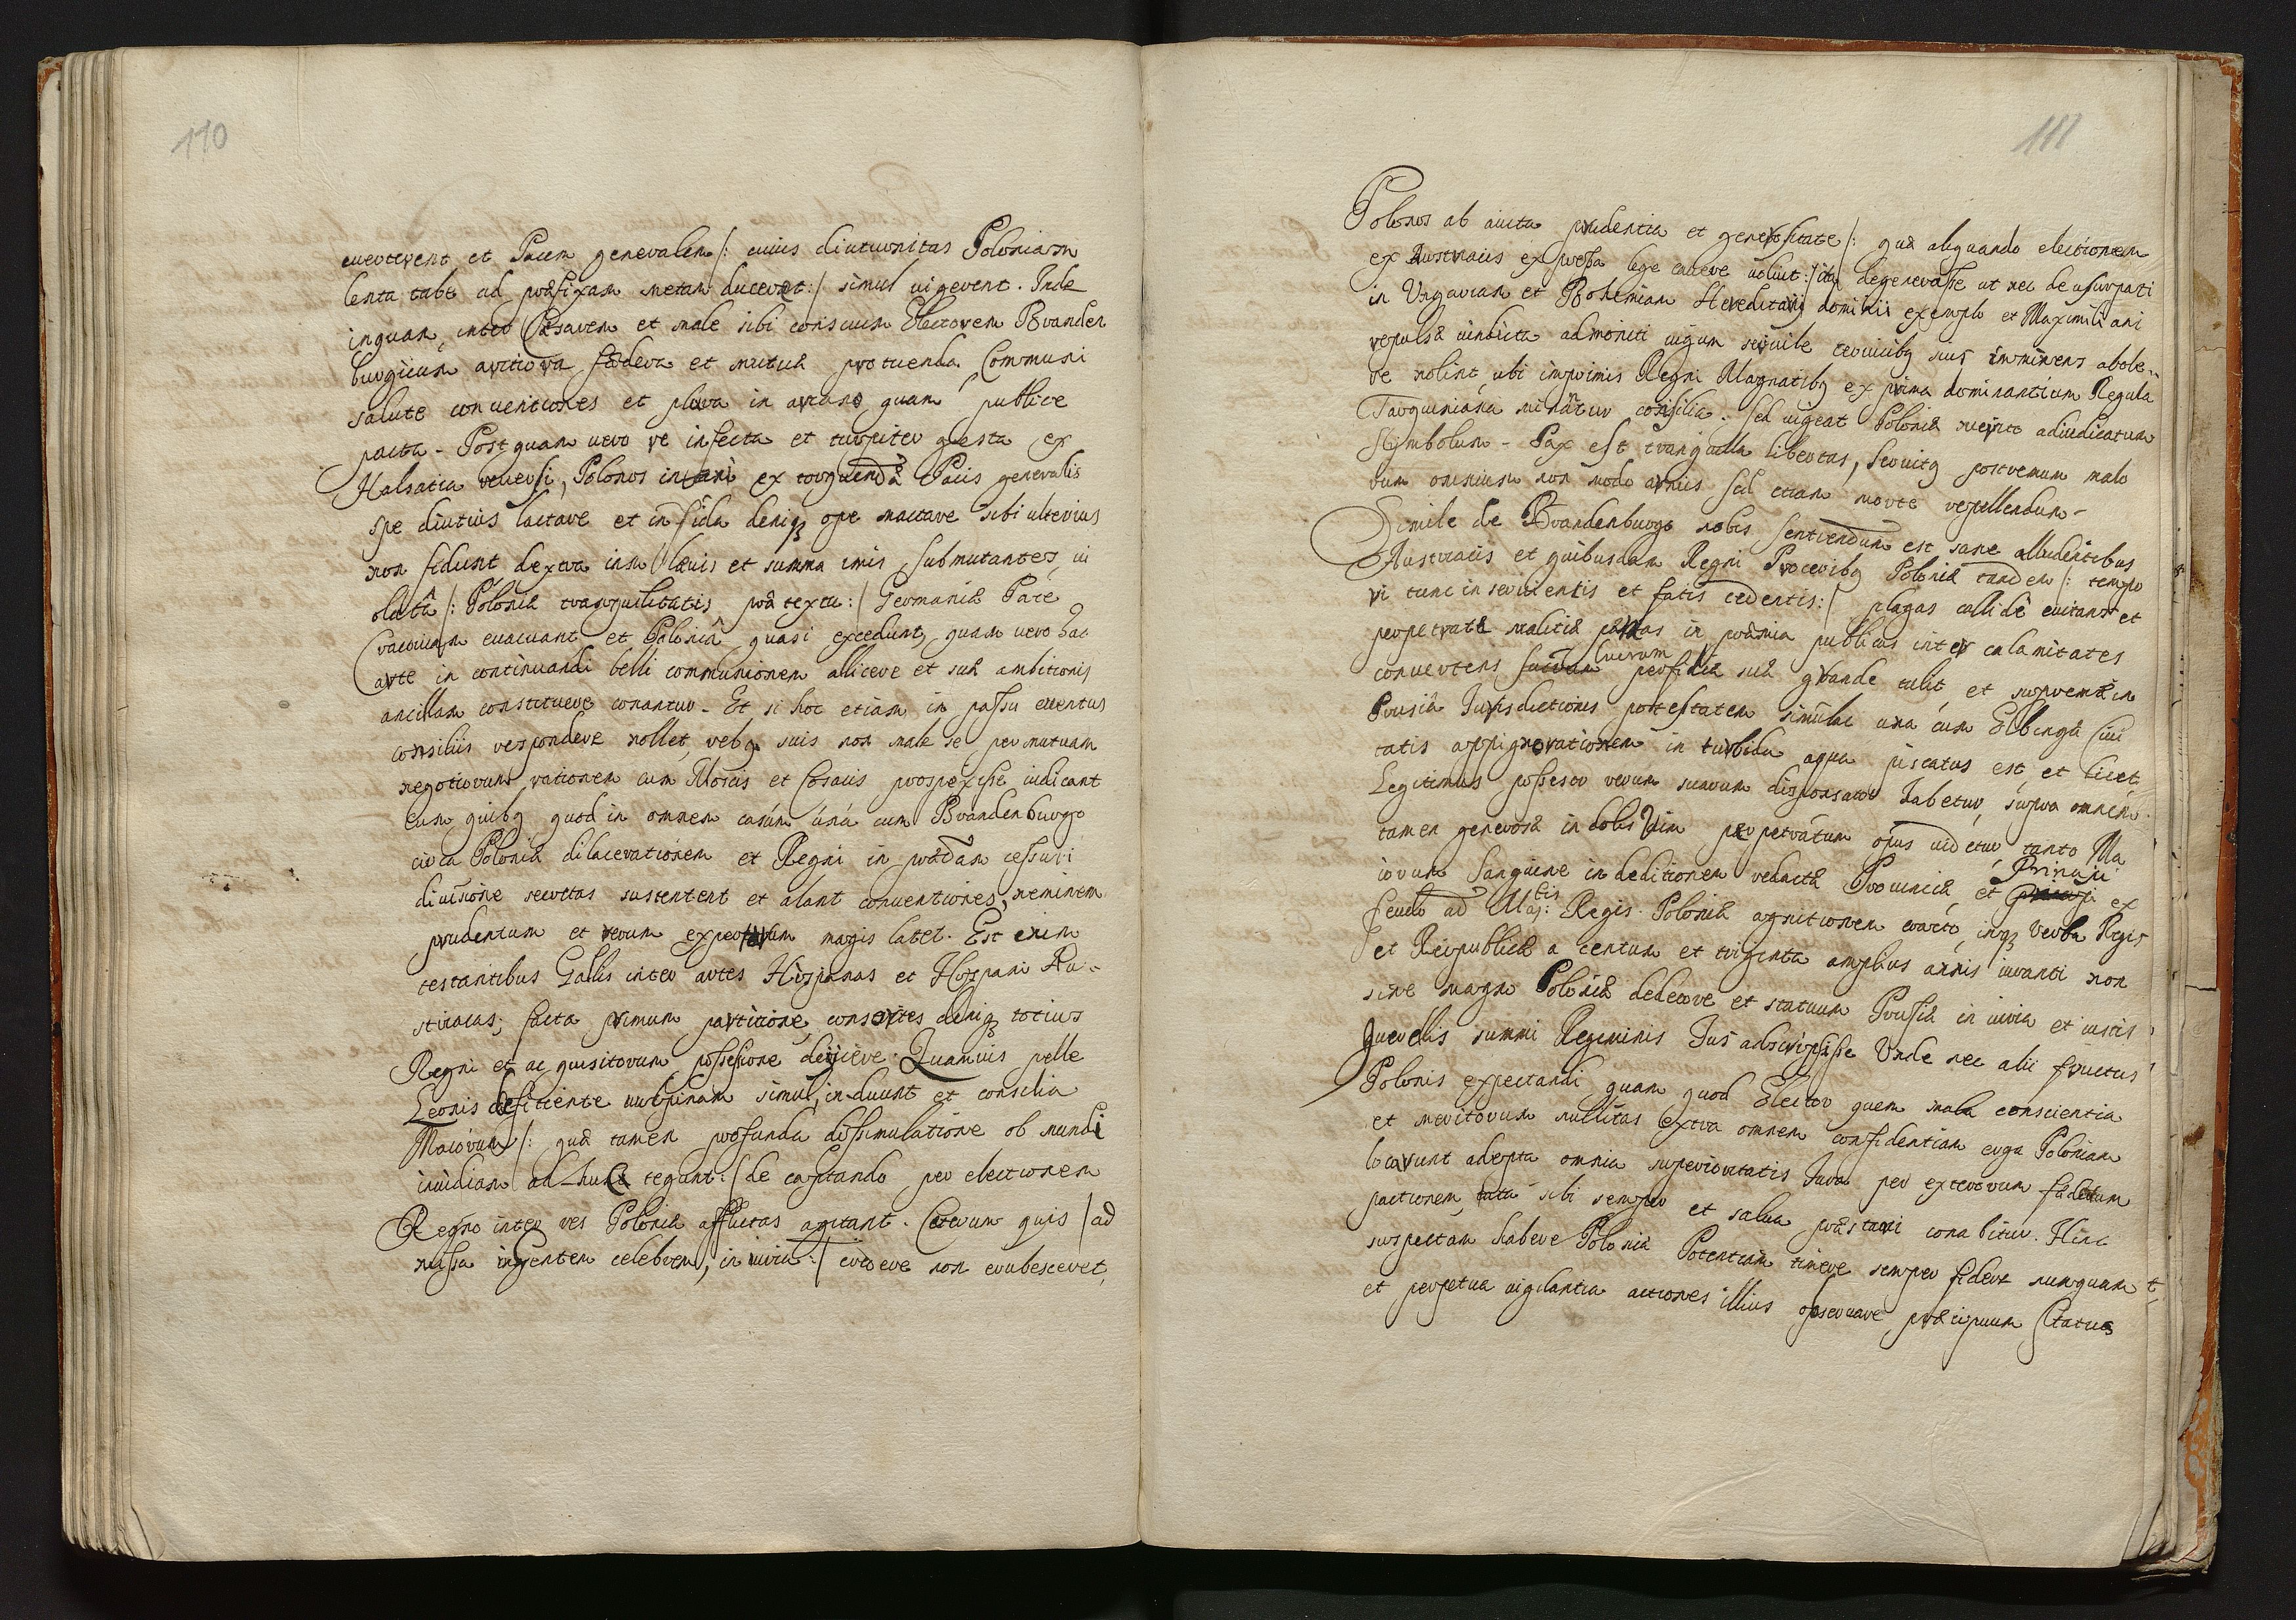 110
euerterent et Pacem generalem /: cuius diuturnitas Poloniam
lenta tabe ad præfixam metam duceret :/ simul uigerent. Inde
inquam, inter Cæsarem et male sibi conscium Electorem Branden
burgicum arctiora fœdera et mutua pro tuenda Communi
salute conuentiones et plura in arcano quam publice
pacta. Postquam uero re infecta et turpiter gesta ex
Halsatia reuersi, Polonos inani ex torquenda Pacis generalis
spe diutius lactare et infida deniq ope mactare sibi ulterius
non fidunt dextra in læuis et summa imis submutantes, ui
olata /: Poloniæ tranquilitatis prætextu :/ Germaniæ Pace
Cracouiam euacuant et Polonia quasi excedunt, quam uero hac
arte in continuandi belli communionem allicere et suæ ambitionis
ancillam constituere conantur. Et si hoc etiam in passu euentus
consiliis respondere nollet, rebq suis non male se per mutuam
negotiorum rationem cum Moscis et Cosacis prospexisse iudicant
Cum quibq quod in omnem casum una cum Brandenburgo
circa Poloniæ dilacerationem et Regni in prædam cessuri
diuisione secretas sustentent et alant conuentiones, neminem
prudentum et rerum expertum magis latet. Est enim
testantibus Gallis inter artes Hispanas et Hispani Au-
striacas; facta primum partitione, consortes deniq totius
Regni et acquisitorum possessione deijcere. Quamuis pelle
Leonis deficiente uulpinam simul, induunt et consilia
Maiorum /: quæ tamen profunda dissimulatione ob mundi
inuidiam adhuc tegunt :/ de captando per electionem
Regno inter res Poloniæ afflictas agitant. Ceterum quis /ad
missa ingentem celebrem, in iuria :/ credere non erubesceret,
111
Polonos ab auita prudentia et generositate /: qua aliquando electionem
ex Austriacis expressa lege cauere uoluit :/ ita degenerasse ut nec de usurpati
in Ungariam et Bohemiam Hereditarij dominii exemplo et Maximiliani
repulsæ uindicta admoniti iugum seruile ceruicibq suis imminens abole-
re nolint, ubi imprimis Regni Magnatibq ex prima dominantium Regula
Tarquiniana minantur consilia. Sed uigeat Poloniæ merito adiudicatum
Symbolum - Pax est tranquilla libertas, Seruitq postremum malo
rum omnium non modo armis sed etiam morte repellendum -
Simile de Brandenburgo nobis sentiendum est sane alludentibus
Austriacis et quibusdam Regni Proceribq Polonia tandem /: tempo
ri tunc inseruientis et fatis cedentis :/ plagas callide euitans et
perpetratæ malitiæ pœnas in præmia publicas inter calamitates
conuertens lucrum perfidiæ suæ grande tulit et supremæ in
Prusia Jurisdictionis potestatem simulac una cum Elbingæ Ciui
tatis oppignorationem in turbida aqua piscatus est, et licet
Legitimus possesor rerum suarum dispensator habetur, supra omnem
tamen generosæ indolis Vim perpetratum opus uidetur, tanto Ma
iorum Sanguine in deditionem redactæ Prouinciæ et Principi ex
feudo ad Maj:tis Regis Poloniæ agnitionem coacto, inq Verba Regis
et Reipublicæ a centum et triginta amplius annis iuranti non
sine magno Poloniæ dedecore et statuum Prusiæ in iuria et iustis
Querelis summi Regiminis Jus adscripsisse Unde nec alii fructus
Polonis expectandi quam quod Elector quem mala conscientia
et meritorum nullitas extra omnem confidentiam erga Poloniam
locarunt adepta omnia superioritatis Jura per exterorum fœderum
pactionem, tuta sibi semper et salua præstari conabitur. Hinc
suspectam habere Poloniæ Potentiam timere semper fidere nunquam et
et perpetua uigilantia actiones illius obseruare præcipuum Status